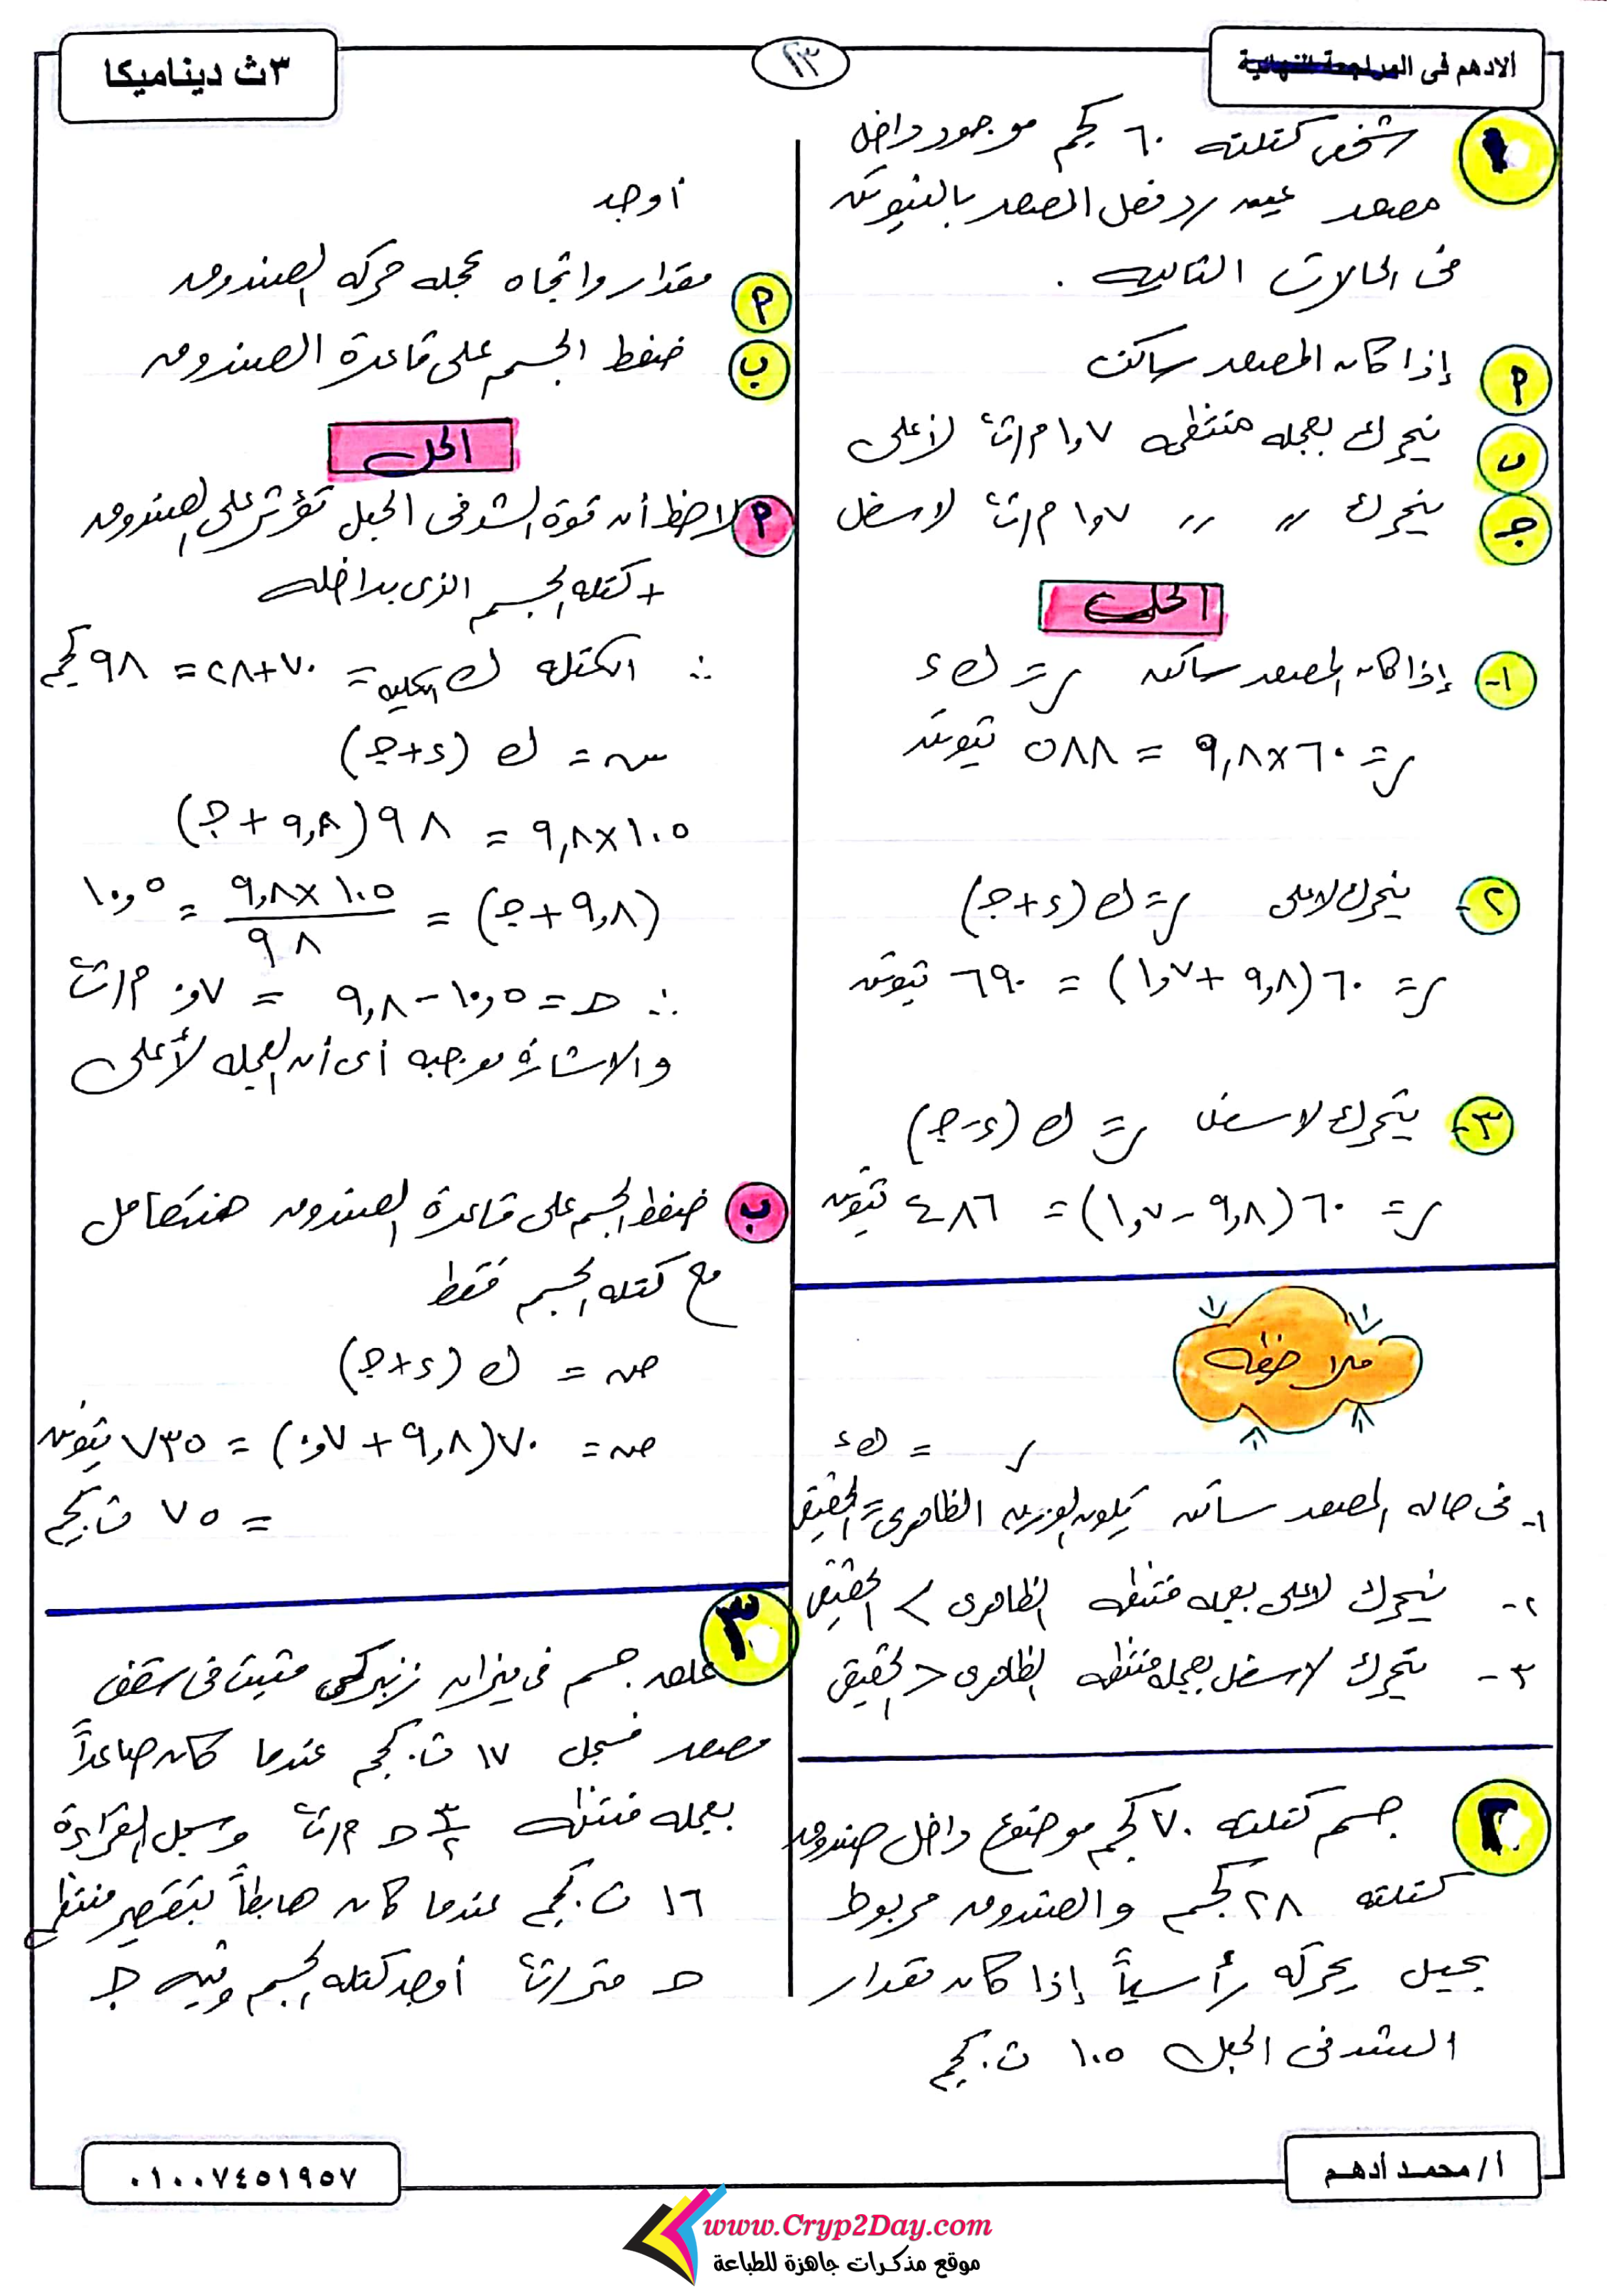 الادهم فى المراجعة النهائية
٢٣
٣ث ديناميكا
١ شخص كتلته ٦٠ كجم موجود داخل
مصعد عين رد فعل المصعد بالنيوتن
فى الحالات التاليه .
٩ إذا كان المصعد ساكن
ب يتحرك بعجله منتظمه ١٫٧ م/ث٢ لأعلى
جـ يتحرك 〃 〃 ١٫٧ م/ث٢ لاسفل
الحل
١- إذا كان المصعد ساكن ر = ك ء
ر = ٦٠×٩٫٨ = ٥٨٨ نيوتن
٢- يتحرك لاعلى ر = ك (ء+جـ)
ر = ٦٠(٩٫٨ + ١٫٧) = ٦٩٠ نيوتن
٣- يتحرك لاسفل ر = ك (ء-جـ)
ر = ٦٠(٩٫٨ - ١٫٧) = ٤٨٦ نيوتن
ملاحظه
ر = ك ء
١- فى حاله المصعد ساكن يكون الوزن الظاهرى = الحقيقى
٢- يتحرك لاعلى بعجله منتظمه الظاهرى > الحقيقى
٣- يتحرك لاسفل بعجله منتظمه الظاهرى < الحقيقى
٢ جسم كتلته ٧٠ كجم موضوع داخل صندوق
كتلته ٢٨ كجم والصندوق مربوط
بحبل يحركه رأسياً إذا كان مقدار
الشد فى الحبل ١٠٥ ث.كجم
أوجد
٩ مقدار واتجاه عجله حركه الصندوق
ب ضغط الجسم على قاعدة الصندوق
الحل
٩ لاحظ أن قوة الشد فى الحبل تؤثر على الصندوق
+ كتله الجسم الذى بداخله
∴ الكتله ك الكليه = ٧٠+٢٨ = ٩٨ كجم
سه = ك (ء+جـ)
١٠٥×٩٫٨ = ٩٨(٩٫٨ + جـ)
(٩٫٨+جـ) = ١٠٥ × ٩٫٨ / ٩٨ = ١٠٫٥
∴ حـ = ١٠٫٥ - ٩٫٨ = ٠٫٧ م/ث٢
والاشارة موجبه أى أن العجله لأعلى
ب ضغط الجسم على قاعدة الصندوق هنتعامل
مع كتله الجسم فقط
صه = ك (ء+جـ)
صه = ٧٠(٩٫٨ + ٠٫٧) = ٧٣٥ نيوتن
= ٧٥ ث.كجم
٣ علق جسم فى ميزان زنبركى مثبت فى سقف
مصعد فسجل ١٧ ث.كجم عندما كان صاعداً
بعجله منتظمه ٣/٢ حـ م/ث٢ وسجل القراءة
١٦ ث.كجم عندما كان هابطاً بتقصير منتظم
حـ متر/ث٢ أوجد كتله الجسم وقيمه جـ
أ/ محمد أدهم
٠١٠٠٧٤٥١٩٥٧
www.Cryp2Day.com
موقع مذكرات جاهزة للطباعة